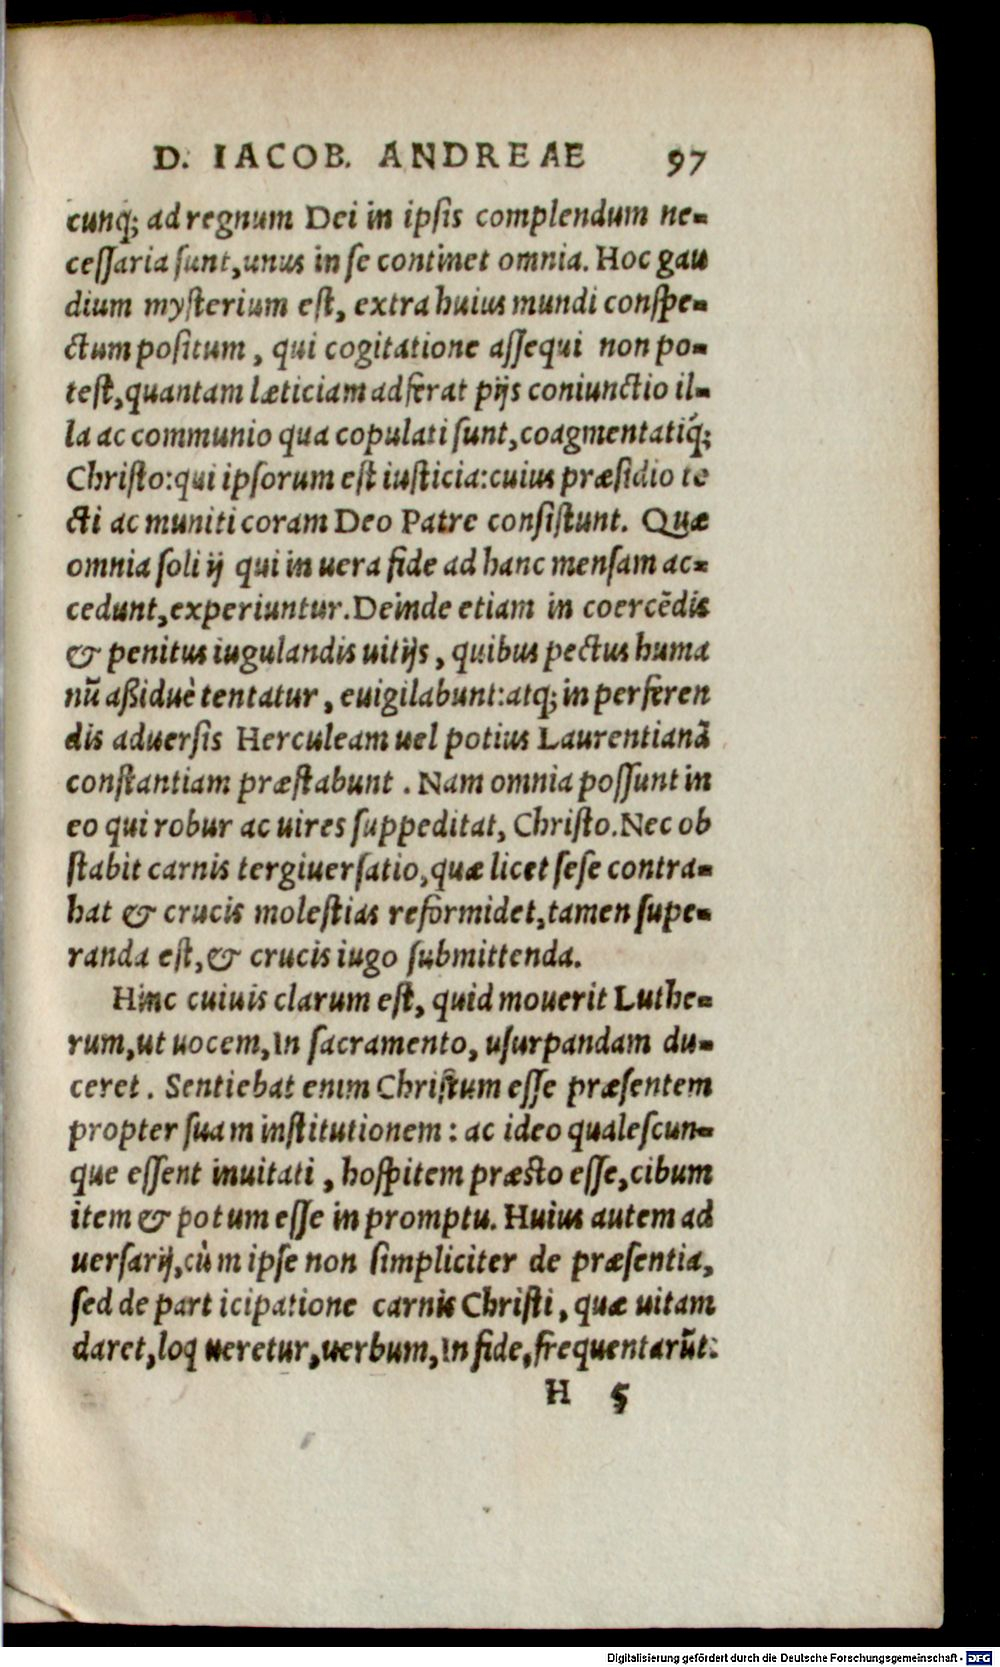 D. IACOB. ANDREAE 97
cunq; ad regnum Dei in ipſis complendum ne-
ceſſaria ſunt, unus in ſe continet omnia. Hoc gau
dium myſterium eſt, extra huius mundi conſpe-
ctum poſitum, qui cogitatione aſſequi non po-
teſt, quantam læticiam adferat pijs coniunctio il-
la ac communio qua copulati ſunt, coagmentatiq́;
Chriſto: qui ipſorum eſt iuſticia: cuius præſidio te
cti ac muniti coram Deo Patre conſiſtunt. Quæ
omnia ſoli ij qui in uera fide ad hanc menſam ac-
cedunt, experiuntur. Deinde etiam in coercẽdis
& penitus iugulandis uitijs, quibus pectus huma
nũ aßiduè tentatur, euigilabunt: atq; in perferen
dis aduerſis Herculeam uel potius Laurentianã
conſtantiam præſtabunt. Nam omnia poſſunt in
eo qui robur ac uires ſuppeditat, Chriſto. Nec ob
ſtabit carnis tergiuerſatio, quæ licet ſeſe contra-
hat & crucis moleſtias reformidet, tamen ſupe-
randa eſt, & crucis iugo ſubmittenda.
Hinc cuiuis clarum eſt, quid mouerit Luthe-
rum, ut uocem, In ſacramento, uſurpandam du-
ceret. Sentiebat enim Chriſtum eſſe præſentem
propter ſuam inſtitutionem: ac ideo qualeſcun-
que eſſent inuitati, hoſpitem præſto eſſe, cibum
item & potum eſſe in promptu. Huius autem ad
uerſarij, cùm ipſe non ſimpliciter de præſentia,
ſed de participatione carnis Chriſti, quæ uitam
daret, loqueretur, uerbum, In fide, frequentarũt:
H 5
Digitalisierung gefördert durch die Deutsche Forschungsgemeinschaft - DFG